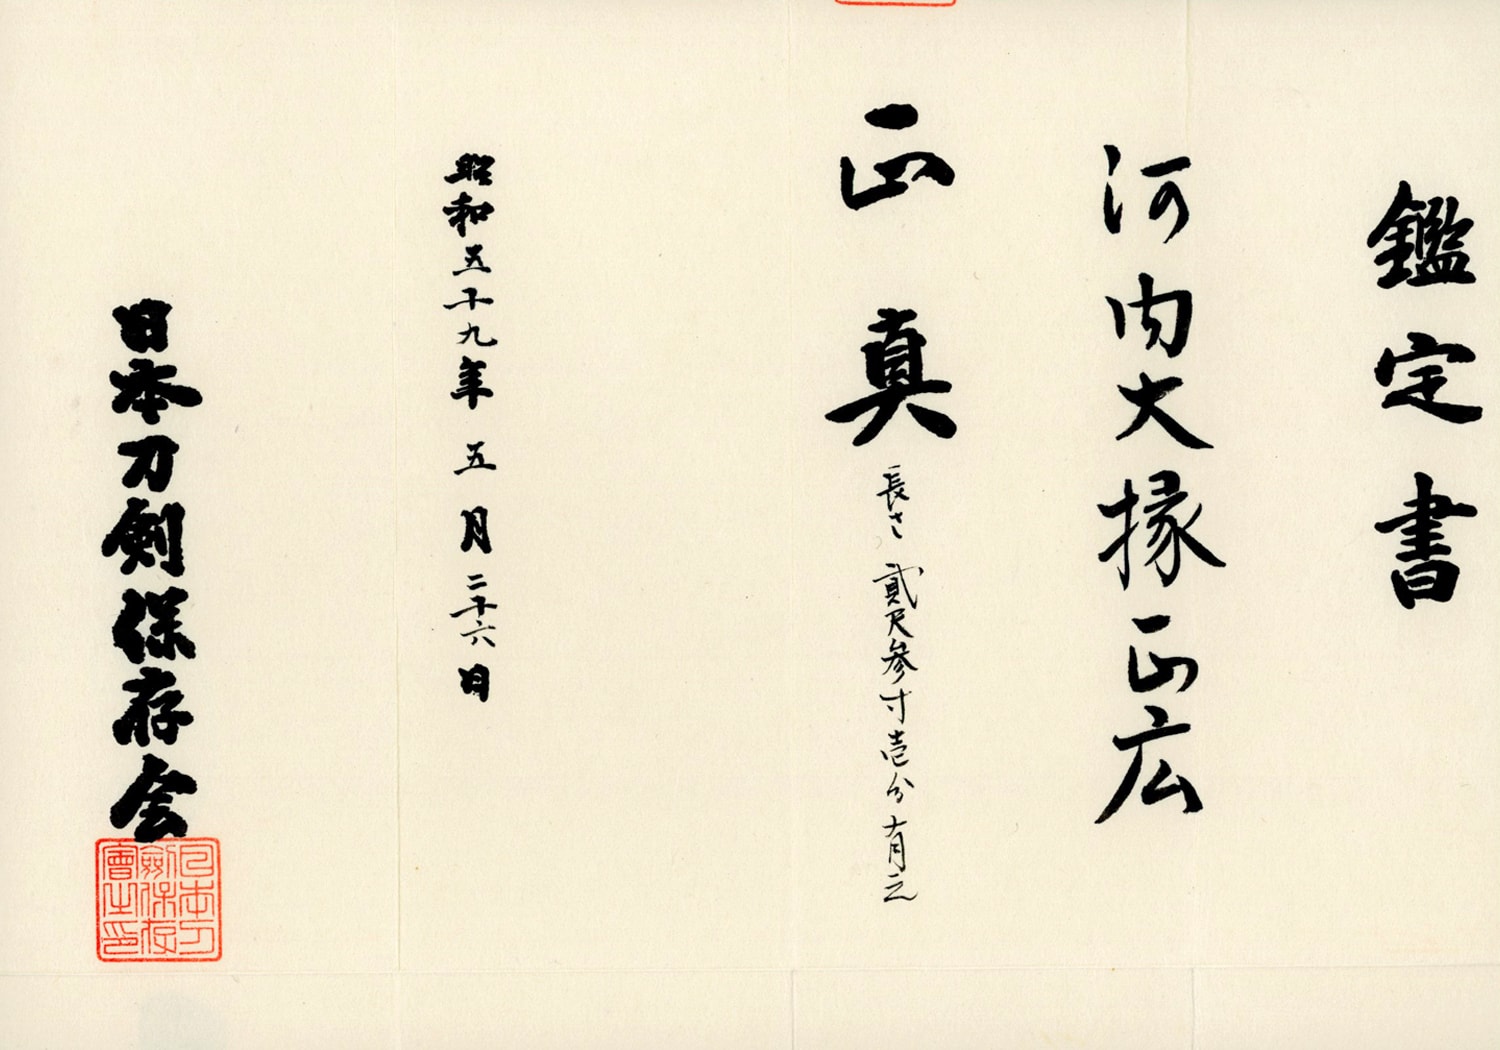 鑑定書
河内大掾正広
正真
長さ 貳尺参寸壱分有之
昭和五十九年五月二十六日
日本刀剣保存会
日本刀
劍保存
會之印